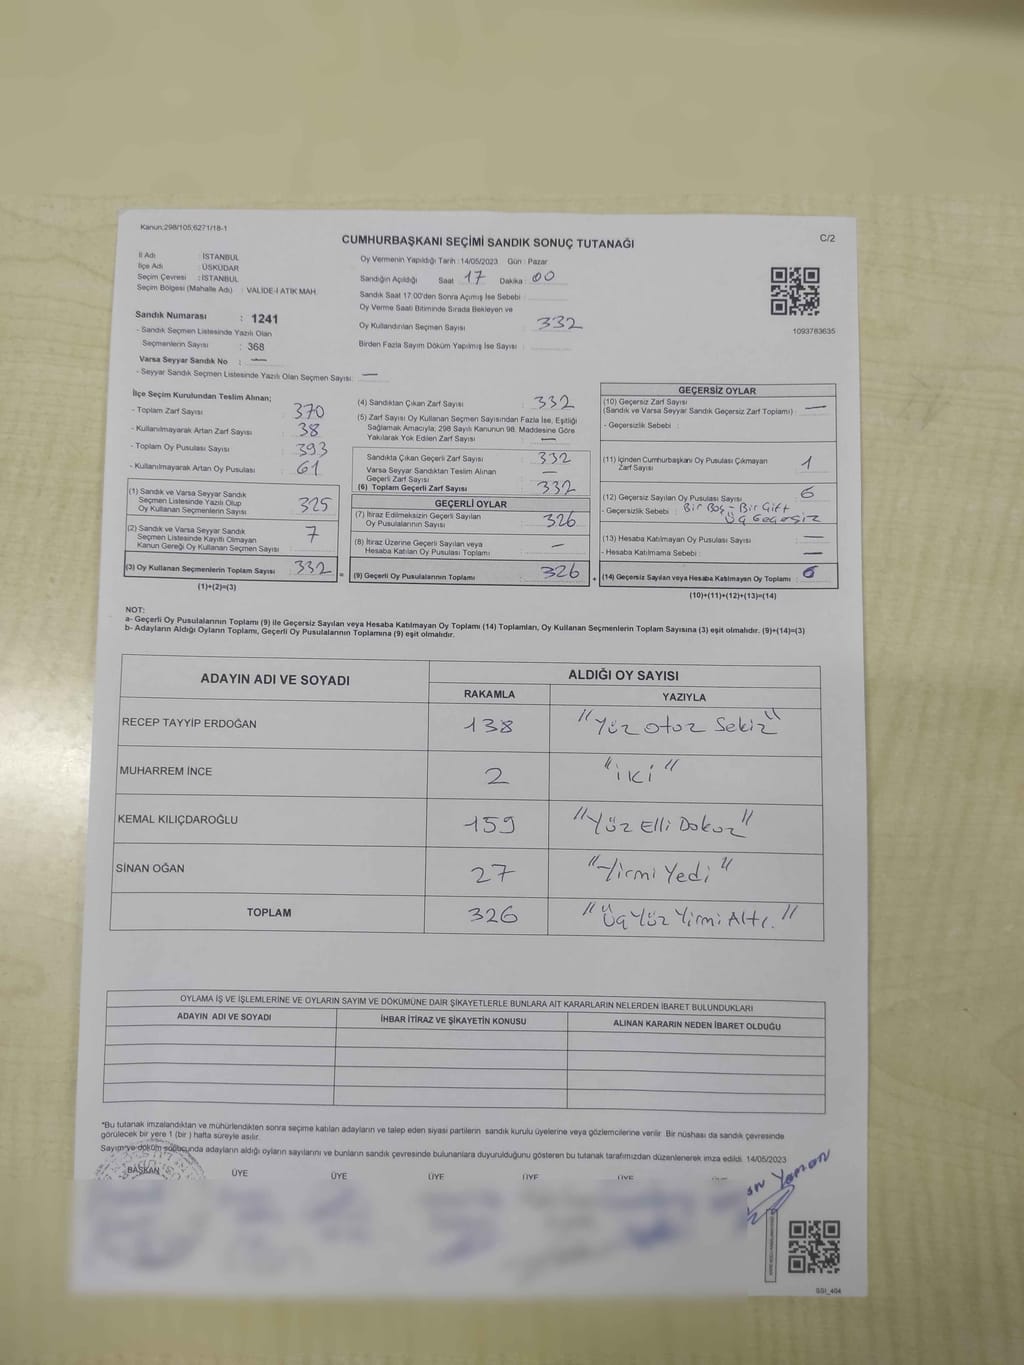 Kanun:298/105;6271/18-1
CUMHURBAŞKANI SEÇİMİ SANDIK SONUÇ TUTANAĞI
C/2
İl Adı : İSTANBUL
İlçe Adı : ÜSKÜDAR
Seçim Çevresi : İSTANBUL
Seçim Bölgesi (Mahalle Adı) : VALİDE-İ ATİK MAH.
Sandık Numarası : 1241
- Sandık Seçmen Listesinde Yazılı Olan
Seçmenlerin Sayısı : 368
Varsa Seyyar Sandık No : —
- Seyyar Sandık Seçmen Listesinde Yazılı Olan Seçmen Sayısı: —
Oy Vermenin Yapıldığı Tarih : 14/05/2023 Gün : Pazar
Sandığın Açıldığı Saat 17 Dakika : 00
Sandık Saat 17:00'den Sonra Açımış İse Sebebi :
Oy Verme Saati Bitiminde Sırada Bekleyen ve
Oy Kullandırılan Seçmen Sayısı 332
Birden Fazla Sayım Döküm Yapılmış İse Sayısı :
1093783635
İlçe Seçim Kurulundan Teslim Alınan;
- Toplam Zarf Sayısı 370
- Kullanılmayarak Artan Zarf Sayısı 38
- Toplam Oy Pusulası Sayısı 393
- Kullanılmayarak Artan Oy Pusulası 61
(1) Sandık ve Varsa Seyyar Sandık
Seçmen Listesinde Yazılı Olup
Oy Kullanan Seçmenlerin Sayısı 325
(2) Sandık ve Varsa Seyyar Sandık
Seçmen Listesinde Kayıtlı Olmayan
Kanun Gereği Oy Kullanan Seçmen Sayısı 7
(3) Oy Kullanan Seçmenlerin Toplam Sayısı 332 =
(1)+(2)=(3)
(4) Sandıktan Çıkan Zarf Sayısı : 332
(5) Zarf Sayısı Oy Kullanan Seçmen Sayısından Fazla İse, Eşitliği
Sağlamak Amacıyla; 298 Sayılı Kanunun 98. Maddesine Göre
Yakılarak Yok Edilen Zarf Sayısı : —
Sandıkta Çıkan Geçerli Zarf Sayısı : 332
Varsa Seyyar Sandıktan Teslim Alınan
Geçerli Zarf Sayısı : —
(6) Toplam Geçerli Zarf Sayısı : 332
GEÇERLİ OYLAR
(7) İtiraz Edilmeksizin Geçerli Sayılan
Oy Pusulalarının Sayısı : 326
(8) İtiraz Üzerine Geçerli Sayılan veya
Hesaba Katılan Oy Pusulası Toplamı : —
(9) Geçerli Oy Pusulalarının Toplamı : 326 +
GEÇERSİZ OYLAR
(10) Geçersiz Zarf Sayısı
(Sandık ve Varsa Seyyar Sandık Geçersiz Zarf Toplamı) : —
- Geçersizlik Sebebi :
(11) İçinden Cumhurbaşkanı Oy Pusulası Çıkmayan
Zarf Sayısı : 1
(12) Geçersiz Sayılan Oy Pusulası Sayısı : 6
- Geçersizlik Sebebi : Bir Boş - Bir Çift
Üç Geçersiz
(13) Hesaba Katılmayan Oy Pusulası Sayısı : —
- Hesaba Katılmama Sebebi : —
(14) Geçersiz Sayılan veya Hesaba Katılmayan Oy Toplamı : 6
(10)+(11)+(12)+(13)=(14)
NOT:
a- Geçerli Oy Pusulalarının Toplamı (9) ile Geçersiz Sayılan veya Hesaba Katılmayan Oy Toplamı (14) Toplamları, Oy Kullanan Seçmenlerin Toplam Sayısına (3) eşit olmalıdır. (9)+(14)=(3)
b- Adayların Aldığı Oyların Toplamı, Geçerli Oy Pusulalarının Toplamına (9) eşit olmalıdır.
ADAYIN ADI VE SOYADI
ALDIĞI OY SAYISI
RAKAMLA YAZIYLA
RECEP TAYYİP ERDOĞAN 138 "Yüz otuz Sekiz"
MUHARREM İNCE 2 "iki"
KEMAL KILIÇDAROĞLU 159 "Yüz Elli Dokuz"
SİNAN OĞAN 27 "Yirmi Yedi"
TOPLAM 326 "Üç Yüz Yirmi Altı."
OYLAMA İŞ VE İŞLEMLERİNE VE OYLARIN SAYIM VE DÖKÜMÜNE DAİR ŞİKAYETLERLE BUNLARA AİT KARARLARIN NELERDEN İBARET BULUNDUKLARI
ADAYIN ADI VE SOYADI İHBAR İTİRAZ VE ŞİKAYETİN KONUSU ALINAN KARARIN NEDEN İBARET OLDUĞU
*Bu tutanak imzalandıktan ve mühürlendikten sonra seçime katılan adayların ve talep eden siyasi partilerin sandık kurulu üyelerine veya gözlemcilerine verilir. Bir nüshası da sandık çevresinde
görülecek bir yere 1 (bir ) hafta süreyle asılır.
Sayım ve döküm sonucunda adayların aldığı oyların sayılarını ve bunların sandık çevresinde bulunanlara duyurulduğunu gösteren bu tutanak tarafımızdan düzenlenerek imza edildi. 14/05/2023
BAŞKAN ÜYE ÜYE ÜYE ÜYE ÜYE
Yaman
SSI_404